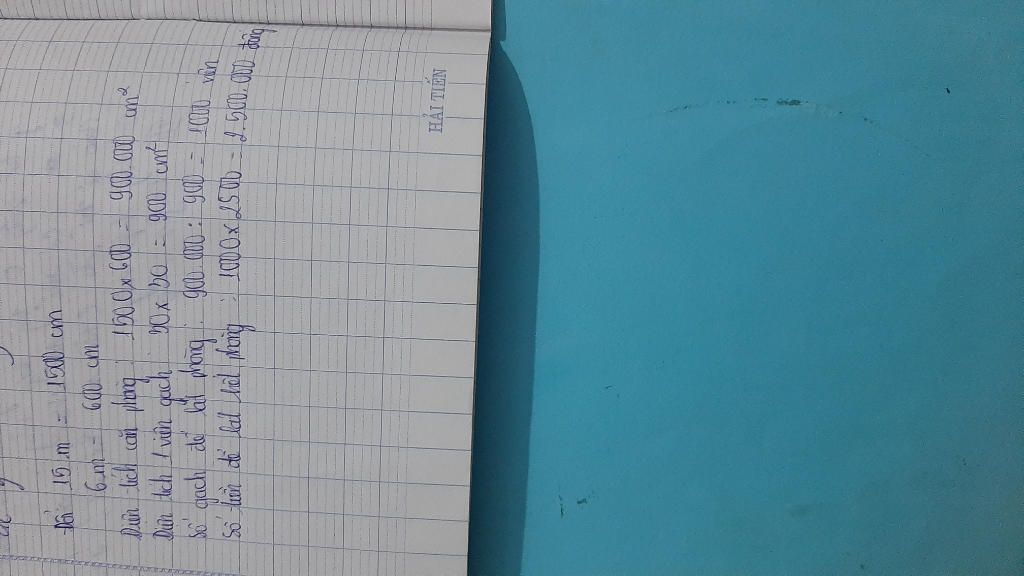 Đổi 15 m = 1500 cm
6 m = 600 cm
Diện tích căn phòng : 1500 x 600 = 900.000 cm²
Diện tích 1 viên gạch : 30 x 30 = 900 cm²
Số gạch để lát phòng : 900.000 : 900 = 1000 viên
Số tiền để lát hết phòng : 1000 x 2500 = 2.500.000 đồng
HẢI TIẾN